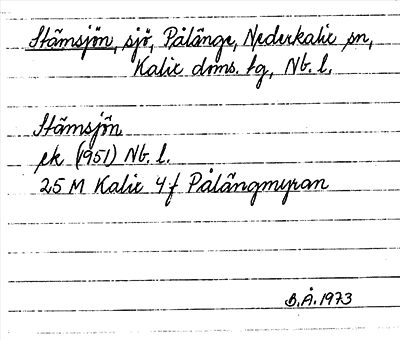 Stämsjön, sjö, Pålänge, Nederkalix sn,
Kalix doms. lg, Nb. l.
Stämsjön
ek (1951) Nb. l.
25 M Kalix 4 f Pålängmyran
B.Å. 1973